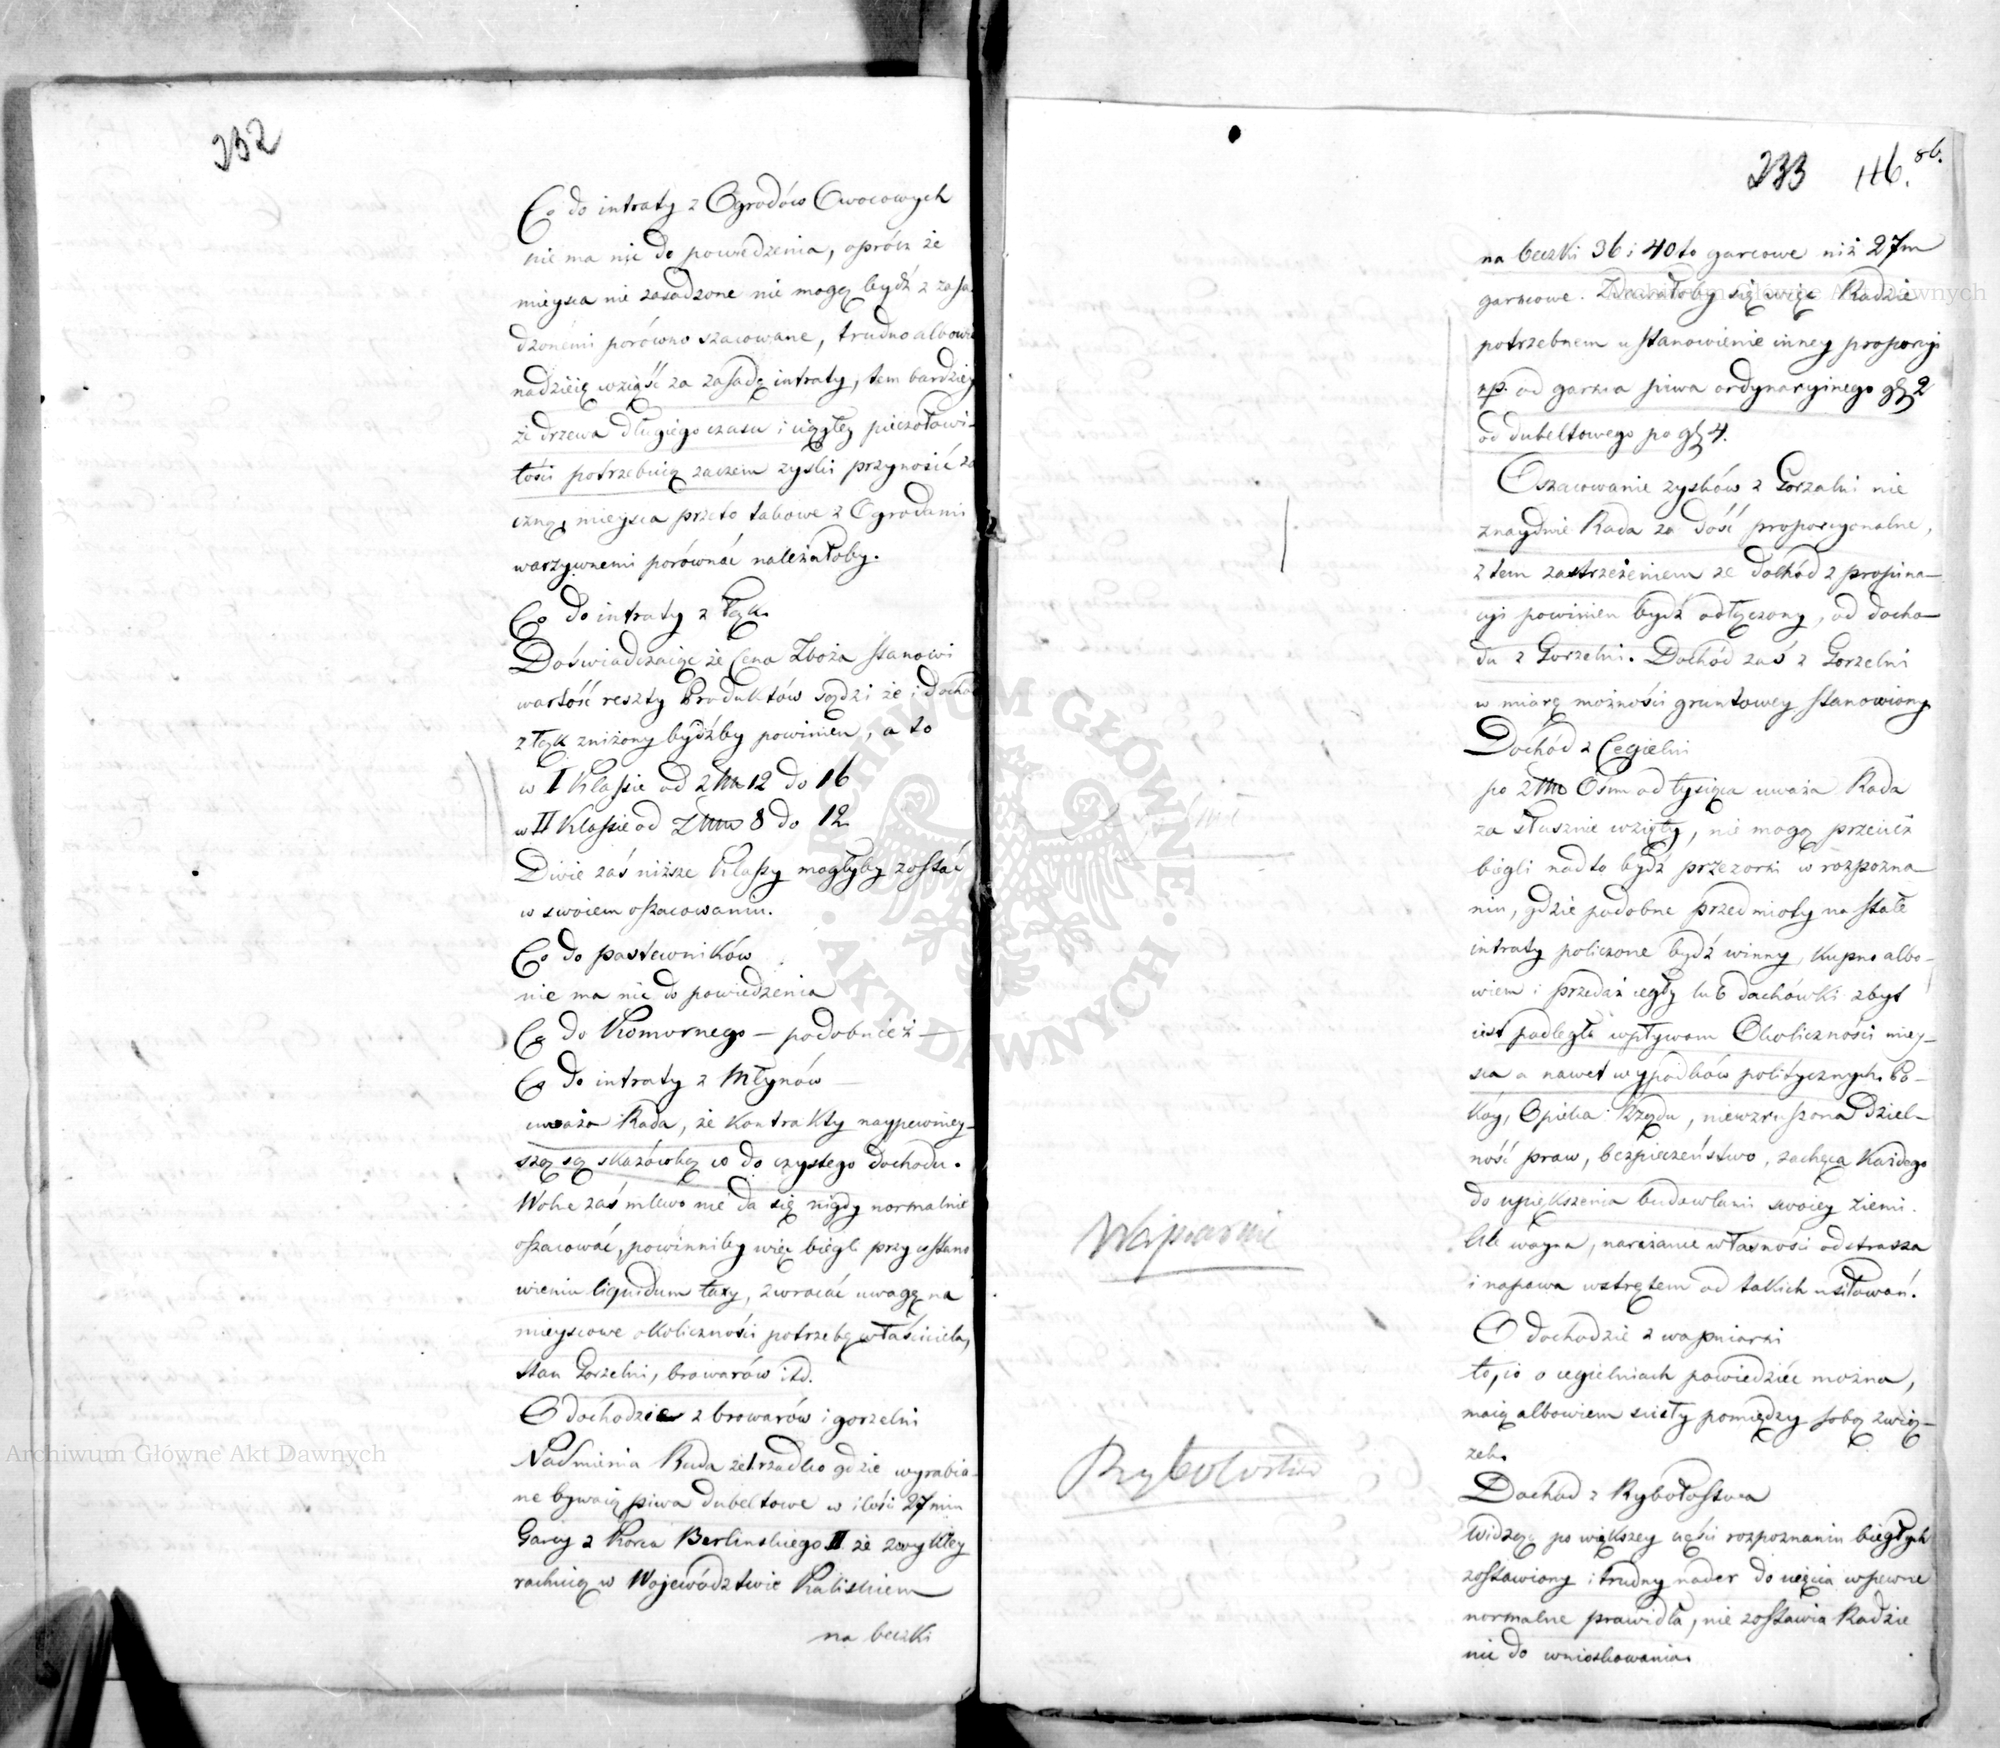 232
Co do intraty z Ogrodów Owocowych
nie ma nic do powiedzenia, oprócz że
mieysca nie zasadzone nie mogą bydź z zasa
dzonemi porówno szacowane, trudno albowi
nadzieię wziąść za zasadę intraty, tem bardziey
że drzewa długiego czasu i ciągłey pieczołowi-
tości potrzebuią zaczem zyski przynosić za
czną, mieysca przeto takowe z Ogrodami
warzywnemi porównać należałoby.
Co do intraty z Łąk.
Doświadczaiąc że Cena Zboża stanowi
wartość reszty Produktów sądzi że i dochod
z łąk zniżony bydźby powinien, a to
w I Klassie od 12 do 16
w II Klassie od 8 do 12
Dwie zaś niższe Klassy mogłyby zostać
w swoiem oszacowaniu.
Co do pastewników
nie ma nic do powiedzenia
Co do Komornego — podobnież —
Co do intraty z Młynów —
uważa Rada, że kontrakty naypewniey-
szą są skazówką co do czystego dochodu.
Wolne zaś mlewo nie da się nigdy normalnie
oszacować, powinniby więc biegli przy ustano
wieniu liquidum taxy, zwracać uwagę na
mieyscowe okoliczności potrzebę właściciela,
stan Gorzelni, browarów itd.
O dochodzie z browarów i gorzelni
Nadmienia Rada że rzadko gdzie wyrabia-
ne bywaią piwa dubeltowe w ilości 27miu
Garcy z Korca Berlinskiego II że zwykley
rachuią w Województwie Kaliskiem
na beczki
233 116. 86.
na beczki 36 i 40to garcowe niż 27m
garncowe. Zdawałoby się więc Radzie
potrzebnem ustanowienie inney proporcyi
np. od garnca piwa ordynaryinego gl 2
od dubeltowego po gl 4.
Oszacowanie zysków z Gorzalni nie
znayduie Rada za dość proporcyonalne,
z tem zastrzeżeniem że dochód z propina-
cyi powinien bydź odłączony, od docho-
du z Gorzelni. Dochód zaś z Gorzelni
w miarę możności gruntowey stanowiony
Dochód z Cegielni
po Ośm od tysiąca uważa Rada
za słusznie wzięty, nie mogą przecież
biegli nadto bydź przezorni w rozpozna
niu, gdzie podobne przedmioty na stałe
intraty policzone bydź winny, kupno albo-
wiem i przedaż cegły lub dachówki zbyt
iest podległa wpływom Okoliczności miey-
sca a nawet wypadków politycznych. Po-
kóy, Opieka Rządu, niewzruszona dziel-
ność praw, bezpieczeństwo, zachęca Każdego
do upiększenia budowlami swoiey ziemi.
Ale woyna, narażanie własności odstrasza
i napawa wstrętem od takich usiłowań.
Wapiarnie
O dochodzie z wapniarni
to, co o cegielniach powiedzieć można,
maią albowiem scisły pomiędzy sobą zwią-
zek.
Rybołostwo
Dochod z Rybołostwa
Widząc po większey części rozpoznaniu biegłych
zostawiony i trudny nader do uięcia w pewne
normalne prawidła, nie zostawia Radzie
nic do wnioskowania.
Archiwum Główne Akt Dawnych
Archiwum Główne Akt Dawnych
ARCHIWUM GŁÓWNE
· AKT DAWNYCH ·